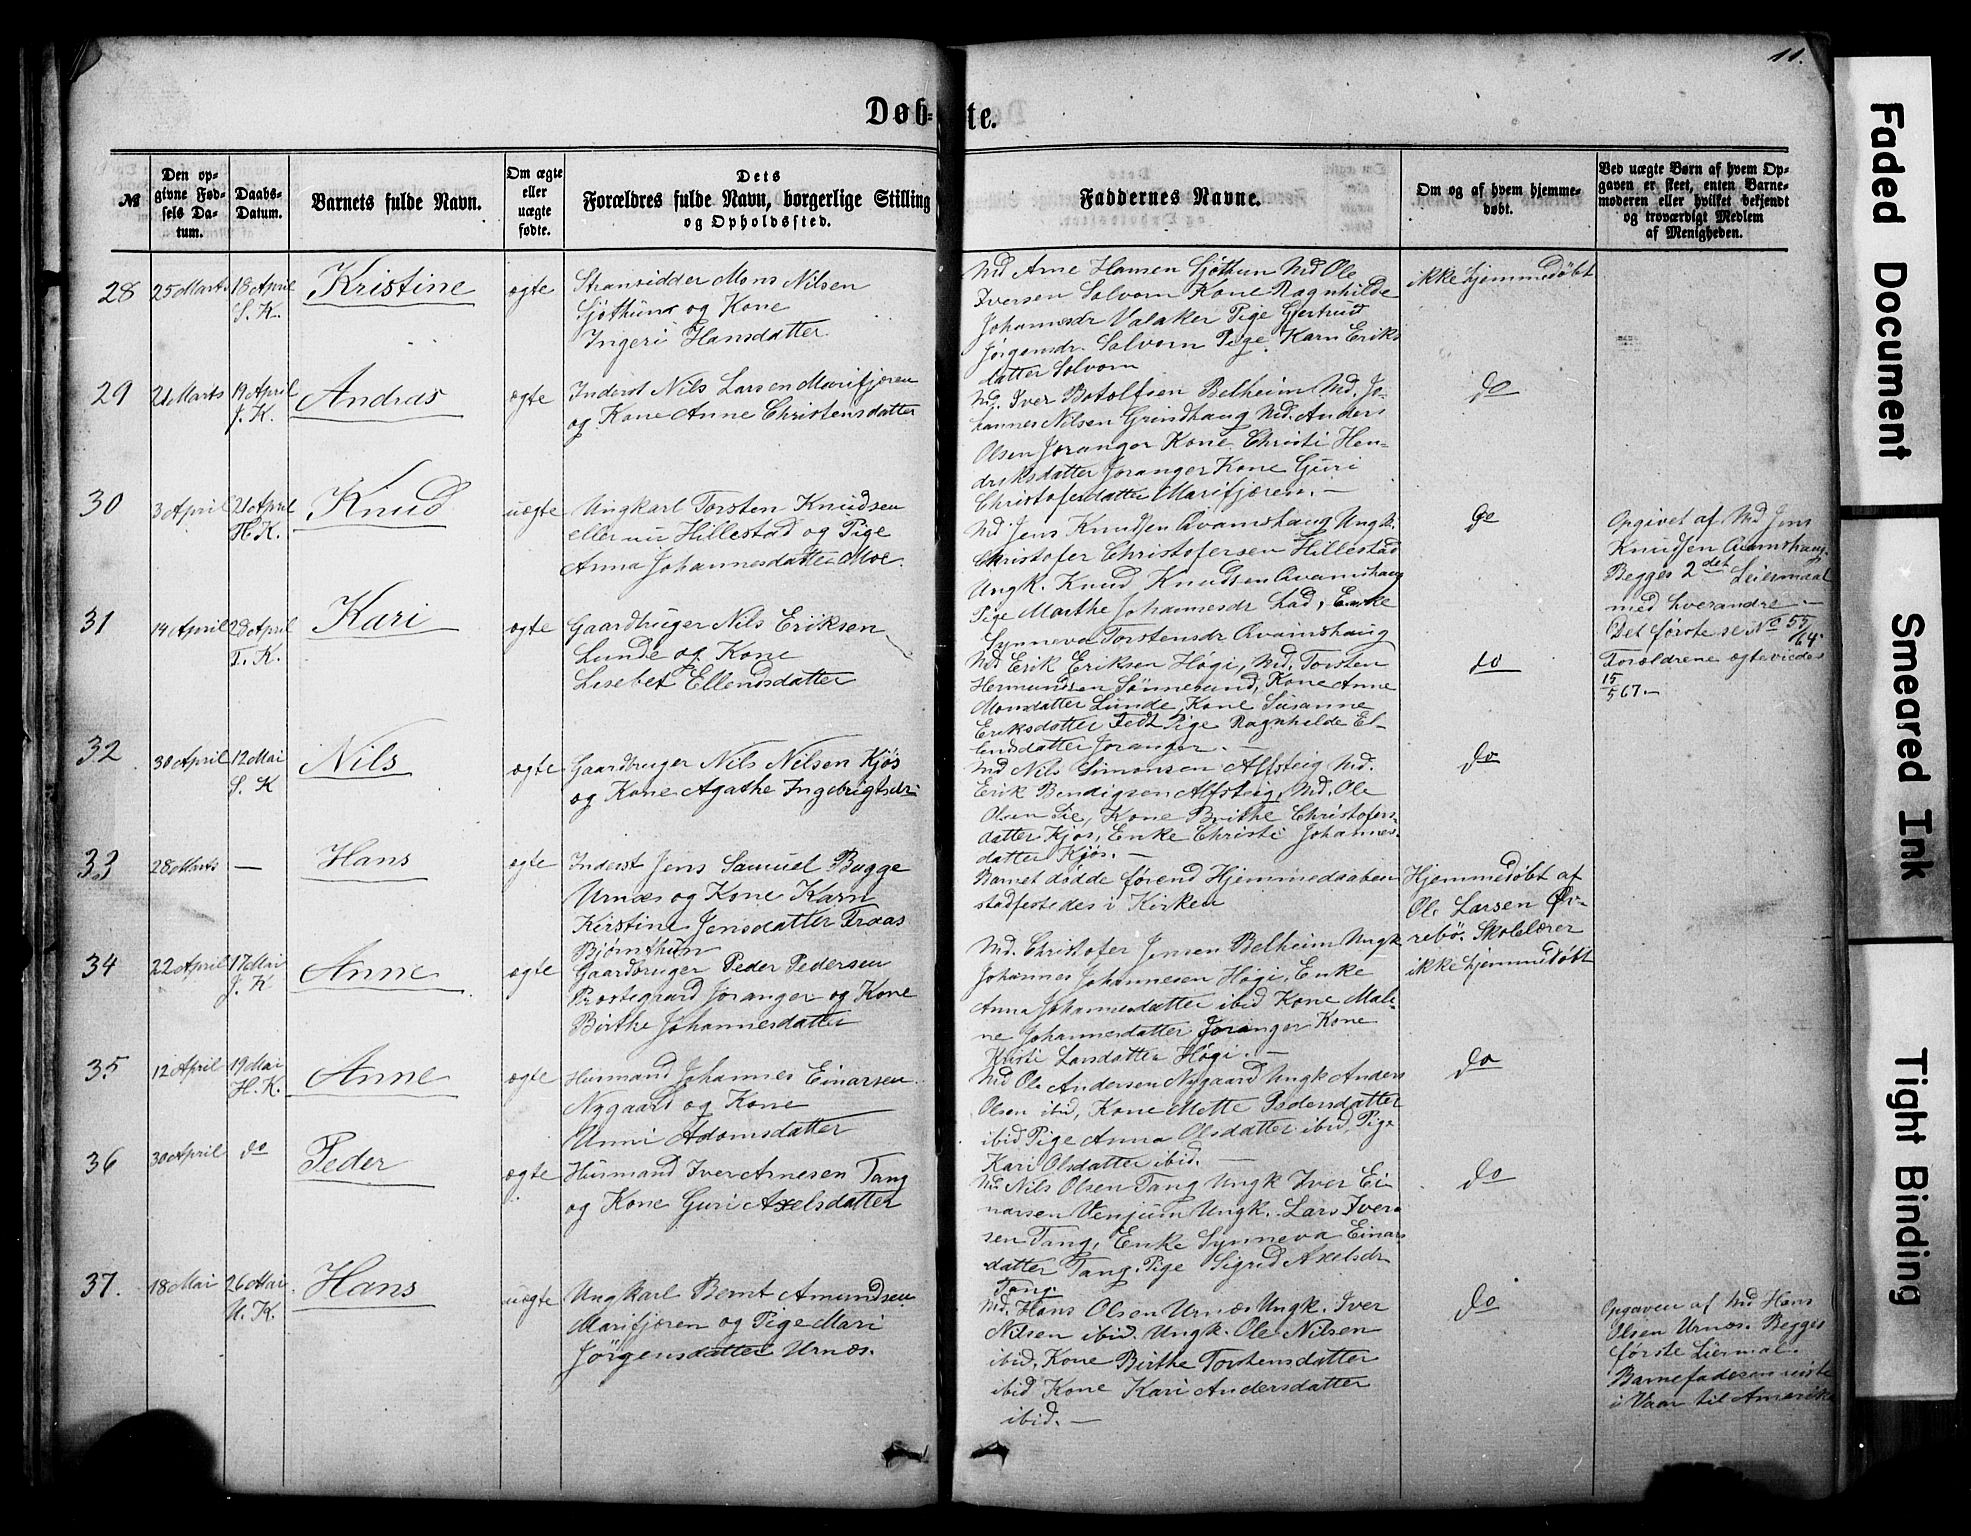 11.
Døb-te.
№
Den op-
givne Fød-
sels Da-
tum.
Daabs-
Datum.
Barnets fulde Navn.
Om ægte
eller
uægte
fødte.
Dets
Forældres fulde Navn, borgerlige Stilling
og Opholdssted.
Faddernes Navne.
Om og af hvem hjemme-
døbt.
Ved uægte Børn af hvem Op-
gaven er skeet, enten Barne-
moderen eller hvilket bekjendt
og troværdigt Medlem
af Menigheden.
28
25 Marts
18 April
S. K.
Kristine
ægte
Stransidder Mons Nilsen
Sjøthun og Kone
Ingeri Hansdatter
Md Arne Hansen Sjøthun Md Ole
Iversen Solvorn Kone Ragnhilde
Johannesdr Valaker Pige Gjertrud
Jørgensdr. Solvorn Pige Karn Eriks
datter Solvorn
ikke hjemmedøbt
29
21 Marts
19 April
J. K.
Andras
ægte
Inderst Nils Larsen Marifjæren
og Kone Anne Christensdatter
Md. Iver Botolfsen Belheim Md. Jo-
hannes Nilsen Grindhaug Md. Anders
Olsen Joranger Kone Christi Hen-
driksdatter Joranger Kone Guri
Christofersdatter Marifjæren. —
do
30
3 April
21 April
H. K.
Knud
uægte
Ungkarl Torsten Knudsen
eller nu Hillestad og Pige
Anna Johannesdatter Moe.
Md Jens Knudsen Qvamshaug Ungk.
Christofer Christofersen Hillestad
Ungk. Knud Knudsen Qvamshaug
Pige Marthe Johannesdr Lad, Enke
Synneva Torstensdr Qvamshaug
do
Opgivet af Md Jens
Knudsen Qvamshaug.
Begges 2det Leiermaal
med hverandre —
Det første se No 55/64.
Forældrene ægteviedes
15/5 67. —
31
14 April
28 April
F. K.
Kari
ægte
Gaardbruger Nils Eriksen
Lunde og Kone
Lisebet Ellendsdatter
Md Erik Eriksen Høgi, Md. Torsten
Hermundsen Sønnesand, Kone Anne
Monsdatter Lunde, Kone Susanne
Eriksdatter Fet Pige Ragnhilde El-
lendsdatter Joranger. —
do
32
30 April
12 Mai
S. K
Nils
ægte
Gaardbruger Nils Nilsen Kjøs
og Kone Agathe Ingebrigtsdr
Md Nils Simonsen Alfsteig Md.
Erik Bendigsen Alfsteig, Md. Ole
Olsen Lie, Kone Brithe Christofers-
datter Kjøs, Enke Christi Johannes-
datter Kjøs. —
do
33
28 Marts
—
Hans
ægte
Inderst Jens Samuel Bugge
Urnæs og Kone Karn
Kirstine Jensdatter Fraas
Bjørnthun
Barnet dødde førend Hjemmedaaben
stadfestedes i Kirken
Hjemmedøbt af
Ole Larsen Øv-
rebø. Skolelærer
34
22 April
17 Mai
J. K
Anne
ægte
Gaardbruger Peder Pedersen
Prestegaard Joranger og Kone
Birthe Johannesdatter
Md. Christofer Jensen Belheim Ungk
Johannes Johannesen Høgi, Enke
Anna Johannesdatter ibid Kone Mali-
ne Johannesdatter Joranger Kone
Kristi Larsdatter Høgi. —
ikke hjemmedøbt
35
12 April
19 Mai
H. K.
Anne
ægte
Husmand Johannes Einarsen
Nygaard og Kone
Unni Adamsdatter
Md Ole Andersen Nygaard Ungk Anders
Olsen ibid, Kone Mette Pedersdatter
ibid Pige Anna Olsdatter ibid, Pige
Kari Olsdatter ibid. —
do
36
30 April
do
Peder
ægte
Husmand Iver Arnesen Tang
og Kone Guri Axelsdatter
Md Nils Olsen Tang Ungk Iver Ei-
narsen Venjum Ungk. Lars Iver-
sen Tang, Enke Synneva Einars
datter Tang. Pige Sigrid Axelsdr
Tang.
do
37.
18 Mai
26 Mai
U. K.
Hans
uægte
Ungkarl Bernt Amundsen
Marifjæren og Pige Mari
Jørgensdatter Urnæs.
Md. Hans Olsen Urnæs Ungk. Iver
Nilsen ibid. Ungk. Ole Nilsen
ibid, Kone Birthe Torstensdatter
ibid Kone Kari Andersdatter
ibid. —
do
Opgaven af Md Hans
Olsen Urnæs. Begges
første Leiermal.
Barnefaderen reiste
i Vaar til Amerika
Faded Document
Smeared Ink
Tight Binding